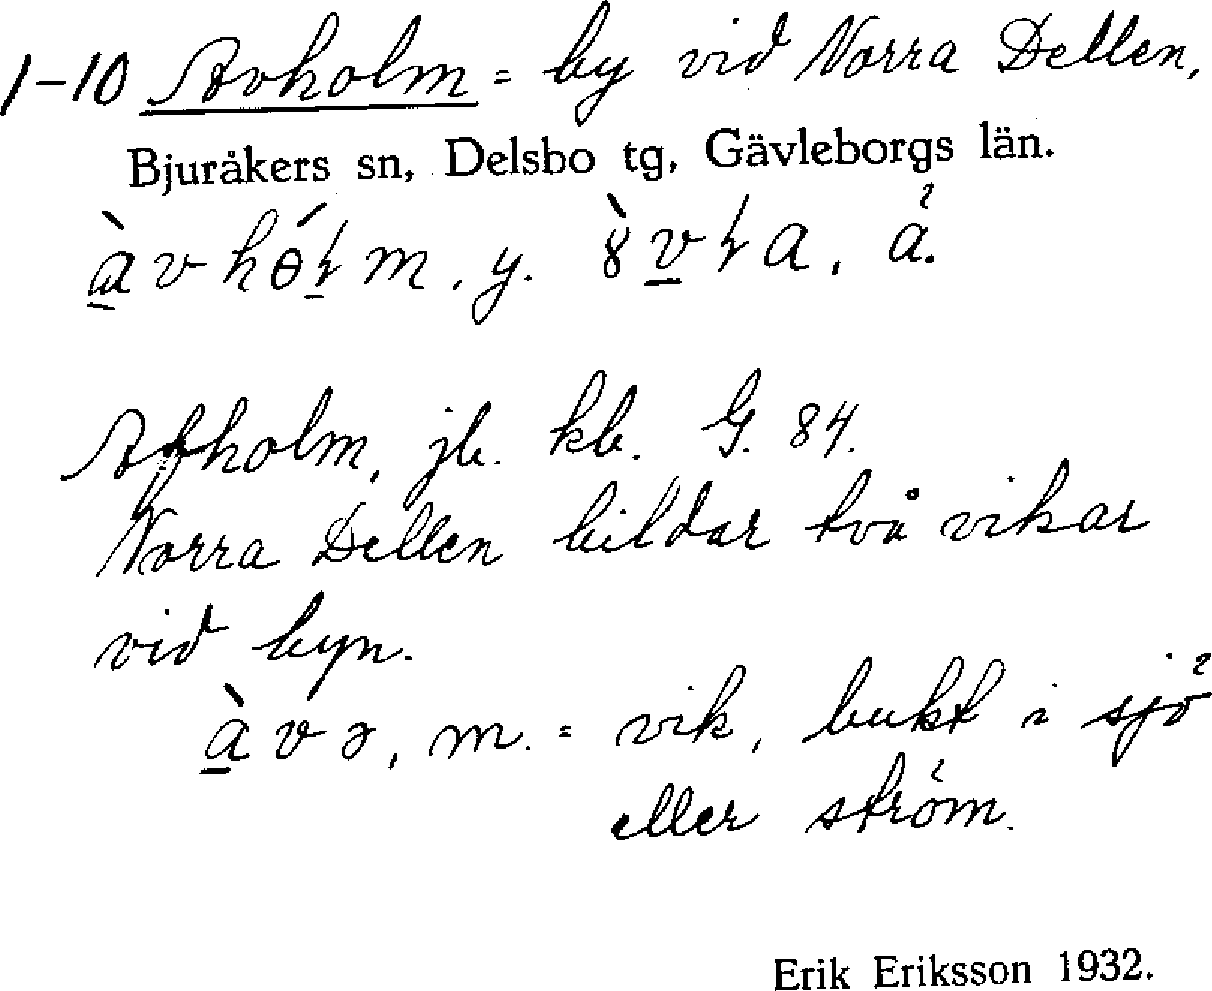 1-10 Avholm = by vid Norra Dellen,
Bjuråkers sn, Delsbo tg, Gävleborgs län.
y. å.
Afholm, jb. kb. G. 84.
Norra Dellen bildar två vikar
vid byn.
àvə, m. = vik, bukt i sjö
eller ström.
Erik Eriksson 1932.